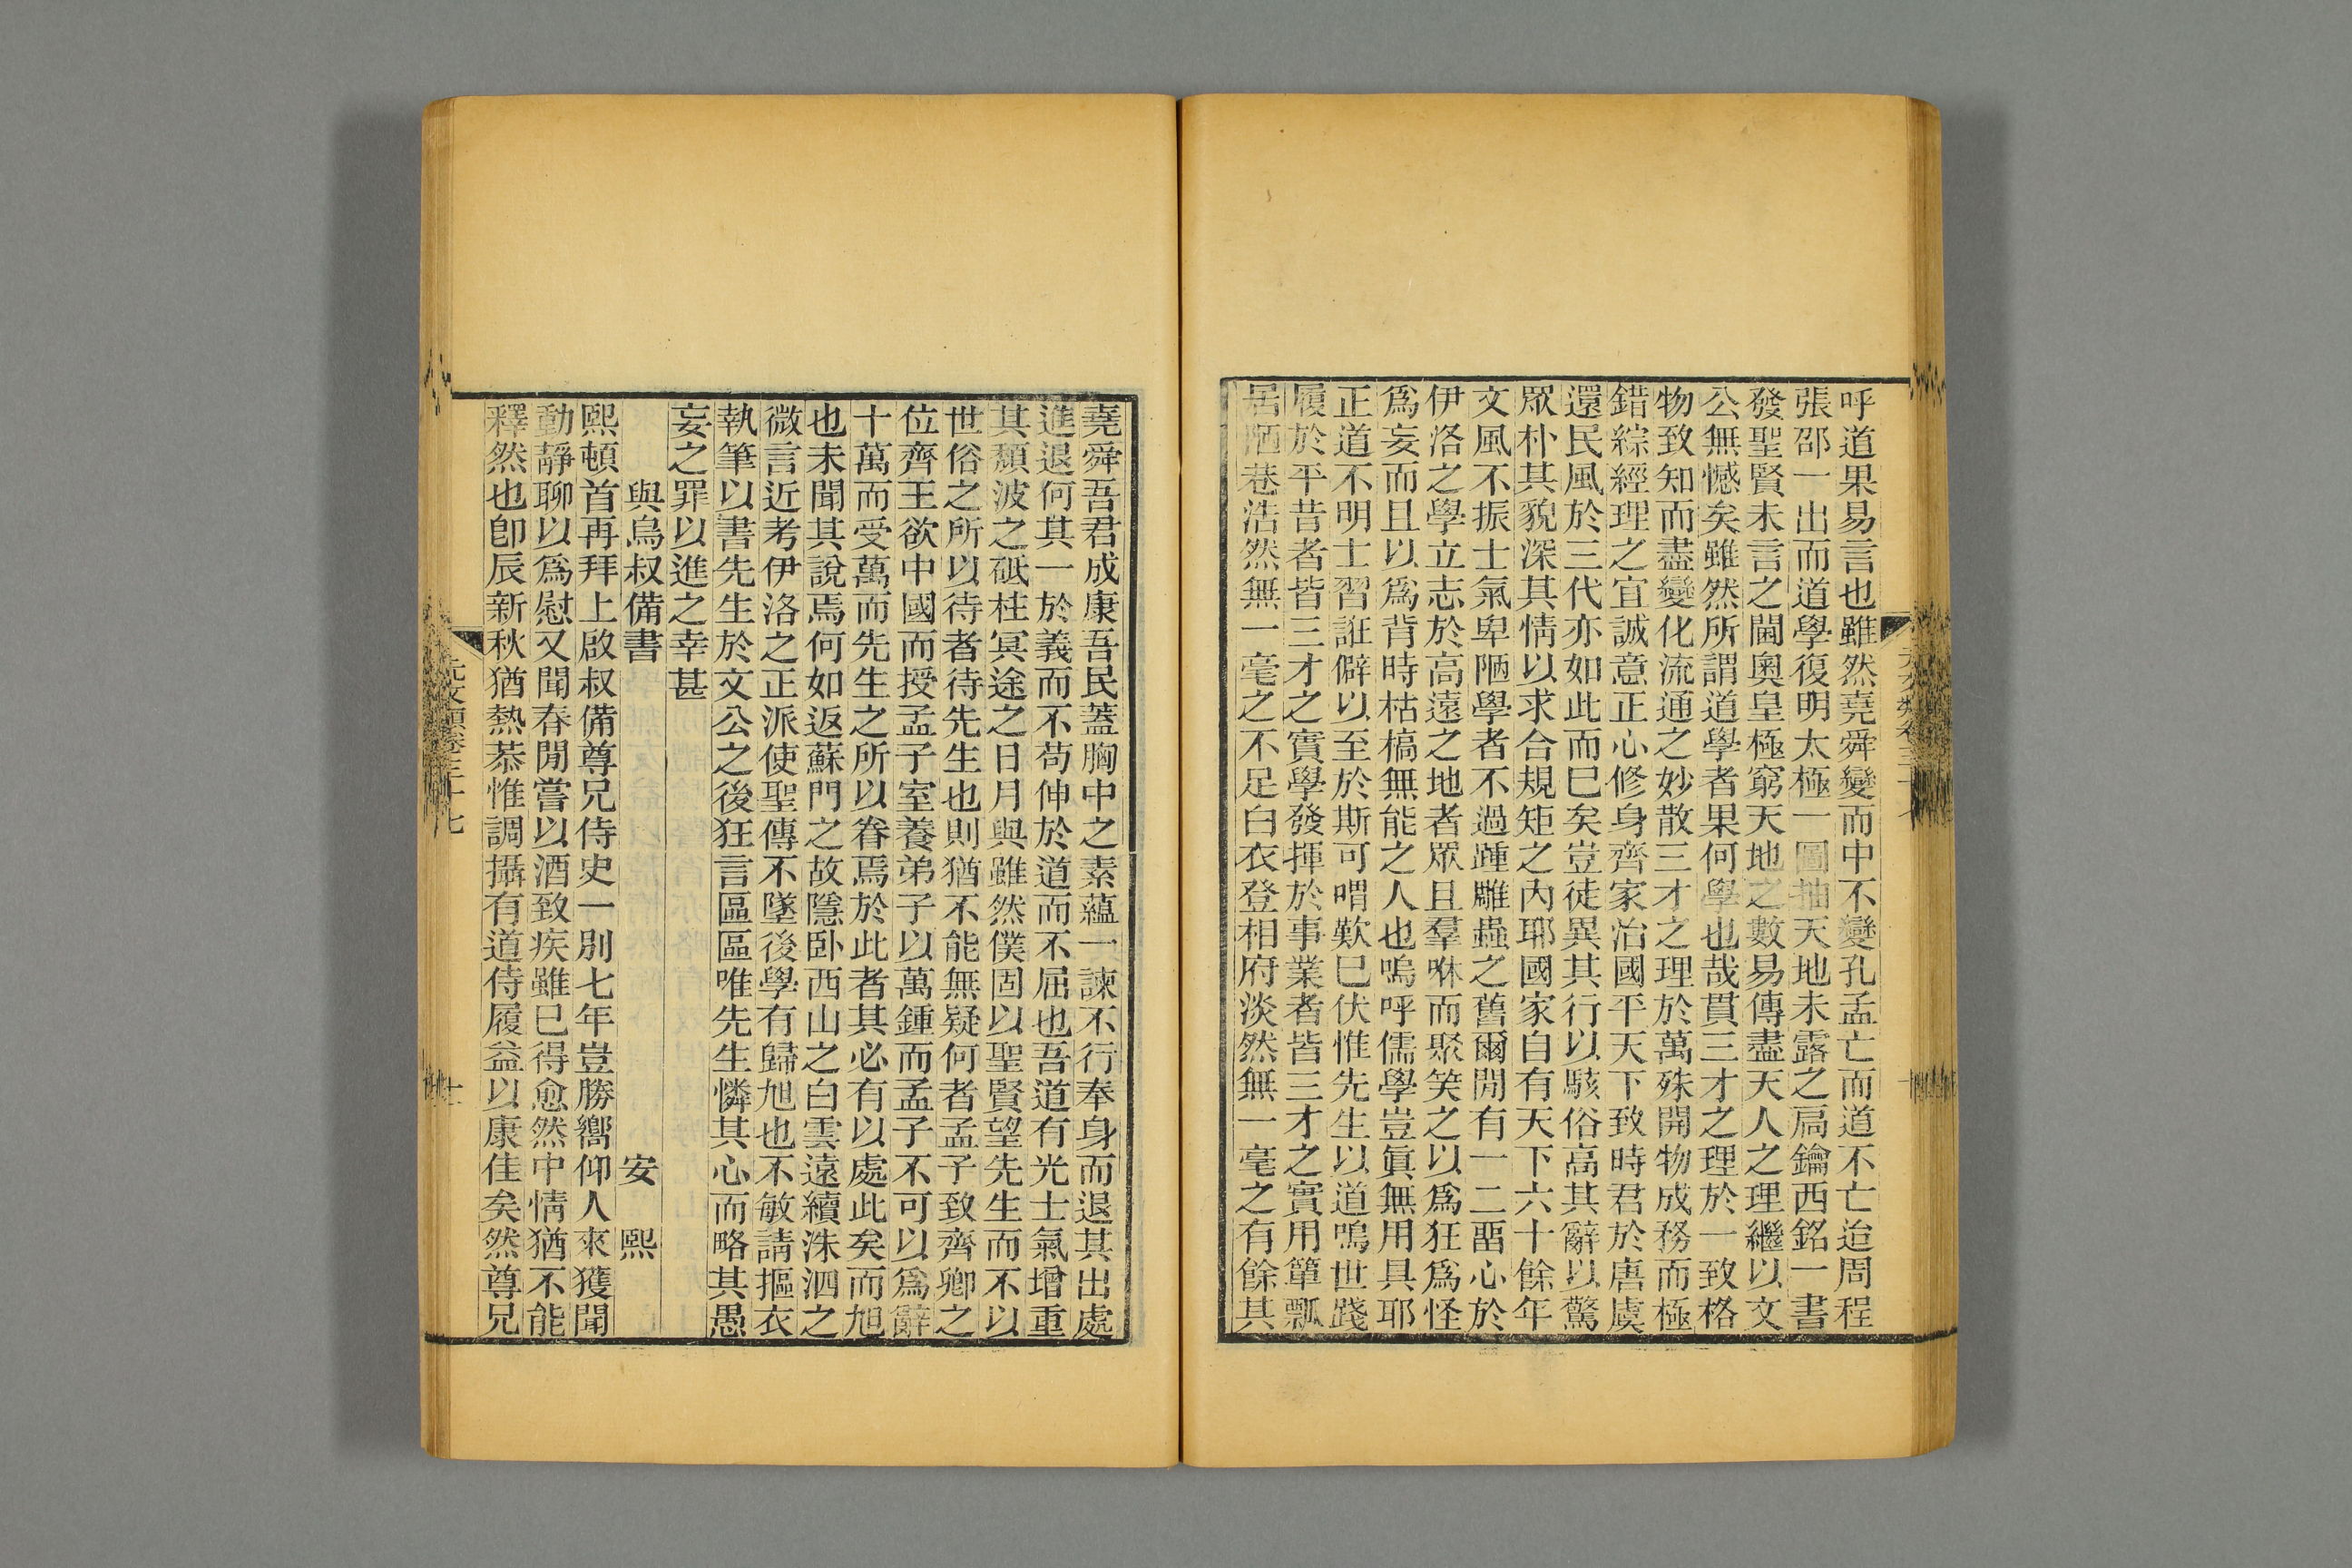 呼道果易言也雖然堯舜變而中不變孔孟亡而道不亡迨周程
張邵一出而道學復明太極一圖抽天地未露之扃鑰西銘一書
發聖賢未言之閫奧皇極窮天地之數易傳盡天人之理繼以文
公無憾矣雖然所謂道學者果何學也哉貫三才之理於一致格
物致知而盡變化流通之妙散三才之理於萬殊開物成務而極
錯綜經理之宜誠意正心修身齊家治國平天下致時君於唐虞
還民風於三代亦如此而巳矣豈徒異其行以駭俗高其辭以驚
眾朴其貌深其情以求合規矩之內耶國家自有天下六十餘年
文風不振士氣卑陋學者不過踵雕蟲之舊爾閒有一二畱心於
伊洛之學立志於高遠之地者眾且羣咻而聚笑之以為狂為怪
為妄而且以為背時枯槁無能之人也嗚呼儒學豈眞無用具耶
正道不明士習誑僻以至於斯可喟歎巳伏惟先生以道鳴世踐
履於平昔者皆三才之實學發揮於事業者皆三才之實用簞瓢
居陋巷浩然無一毫之不足白衣登相府淡然無一毫之有餘其
堯舜吾君成康吾民蓋胸中之素蘊一諫不行奉身而退其出處
進退何其一於義而不苟伸於道而不屈也吾道有光士氣增重
其頹波之砥柱冥途之日月與雖然僕固以聖賢望先生而不以
世俗之所以待者待先生也則猶不能無疑何者孟子致齊卿之
位齊王欲中國而授孟子室養弟子以萬鍾而孟子不可以為辭
十萬而受萬而先生之所以眷焉於此者其必有以處此矣而旭
也未聞其說焉何如返蘇門之故隱卧西山之白雲遠續洙泗之
微言近考伊洛之正派使聖傳不墜後學有歸旭也不敏請摳衣
執筆以書先生於文公之後狂言區區唯先生憐其心而略其愚
妄之罪以進之幸甚
與烏叔備書 安 熙
熙頓首再拜上啟叔備尊兄侍史一別七年豈勝嚮仰人來獲聞
動靜聊以為慰又聞春閒嘗以酒致疾雖巳得愈然中情猶不能
釋然也卽辰新秋猶熱恭惟調攝有道侍履益以康佳矣然尊兄
元文類卷三十七